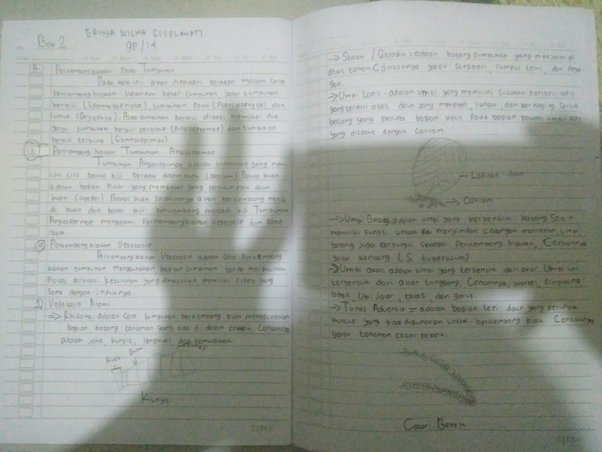 ERISYA WILMA GISELAWATI
9F/14
Bab 2
A Perkembangbiakan Pada Tumbuhan
Pada bab ini akan dipelajari berbagai macam cara
perkembangbiakan kelompok besar tumbuhan, yaitu tumbuhan
berbiji (Spermatophyta), tumbuhan paku (Pteridophyta) dan
lumut (Bryophyta). Pada tumbuhan berbiji dibagi menjadi dua
yaitu tumbuhan berbiji tertutup (Angiospermae) dan tumbuhan
berbiji terbuka (Gymnospermae)
1 Perkembangbiakan Tumbuhan Angiospermae
Tumbuhan Angiospermae adalah tumbuhan yang memi
liki ciri bakal biji berada didalam buah (Ovarium). Bakal buah
adalah bagian putik yang membesar yang tersusun dari daun
buah (karpel). Bakal buah selanjutnya akan berkembang menja
di buah dan bakal biji berkembang menjadi biji. Tumbuhan
Angiospermae mengalami Perkembangbiakan Vegetatif dan Gene
ratif
Perkembangbiakan Vegetatif
Perkembangbiakan Vegetatif adalah cara perkembang
biakan tumbuhan menggunakan bagian tumbuhan yang
proses tersebut keturunan yang dihasilkan memiliki sifat yang
sama dengan induknya.
Vegetatif Alami
=> Rhizoma adalah cara tumbuhan berkembang biak menggunakan
bagian batang tanaman yang ada di dalam tanah. Contohnya
adalah jahe, kunyit, lengkuas dan temulawak
Kunyit
-> Stolon / Geragih = adalah batang tumbuhan yang menjalar di
atas tanah Contohnya yaitu stroberi, rumput teki, dan
-> Umbi Lapis = adalah umbi yang memiliki susunan berlapis lapis
yang terdiri atas daun yang menebal, lunak, dan berdaging serta
batang yang berupa bagian kecil pada bagian bawah umbi lapis
yang disebut dengan cakram.
Lapisan daun
Cakram
-> Umbi Batang adalah umbi yang berbentuk batang selain
memiliki fungsi untuk menyimpan cadangan makanan, umbi
batang juga berfungsi sebagai perkembangbiakan, Contohnya
yaitu kentang (S. tuberosum)
-> Umbi akar adalah umbi yang terbentuk dari akar Umbi ini
terbentuk dari akar tunggang. Contohnya, wortel, singkong
lobak, ubi jalar, talas, dan
-> Tunas Adventif = adalah bagian tepi daun yang berupa
kuncup yang bisa digunakan untuk berkembang biak. Contohnya
yaitu tanaman cocor bebek
Cocor Bebek